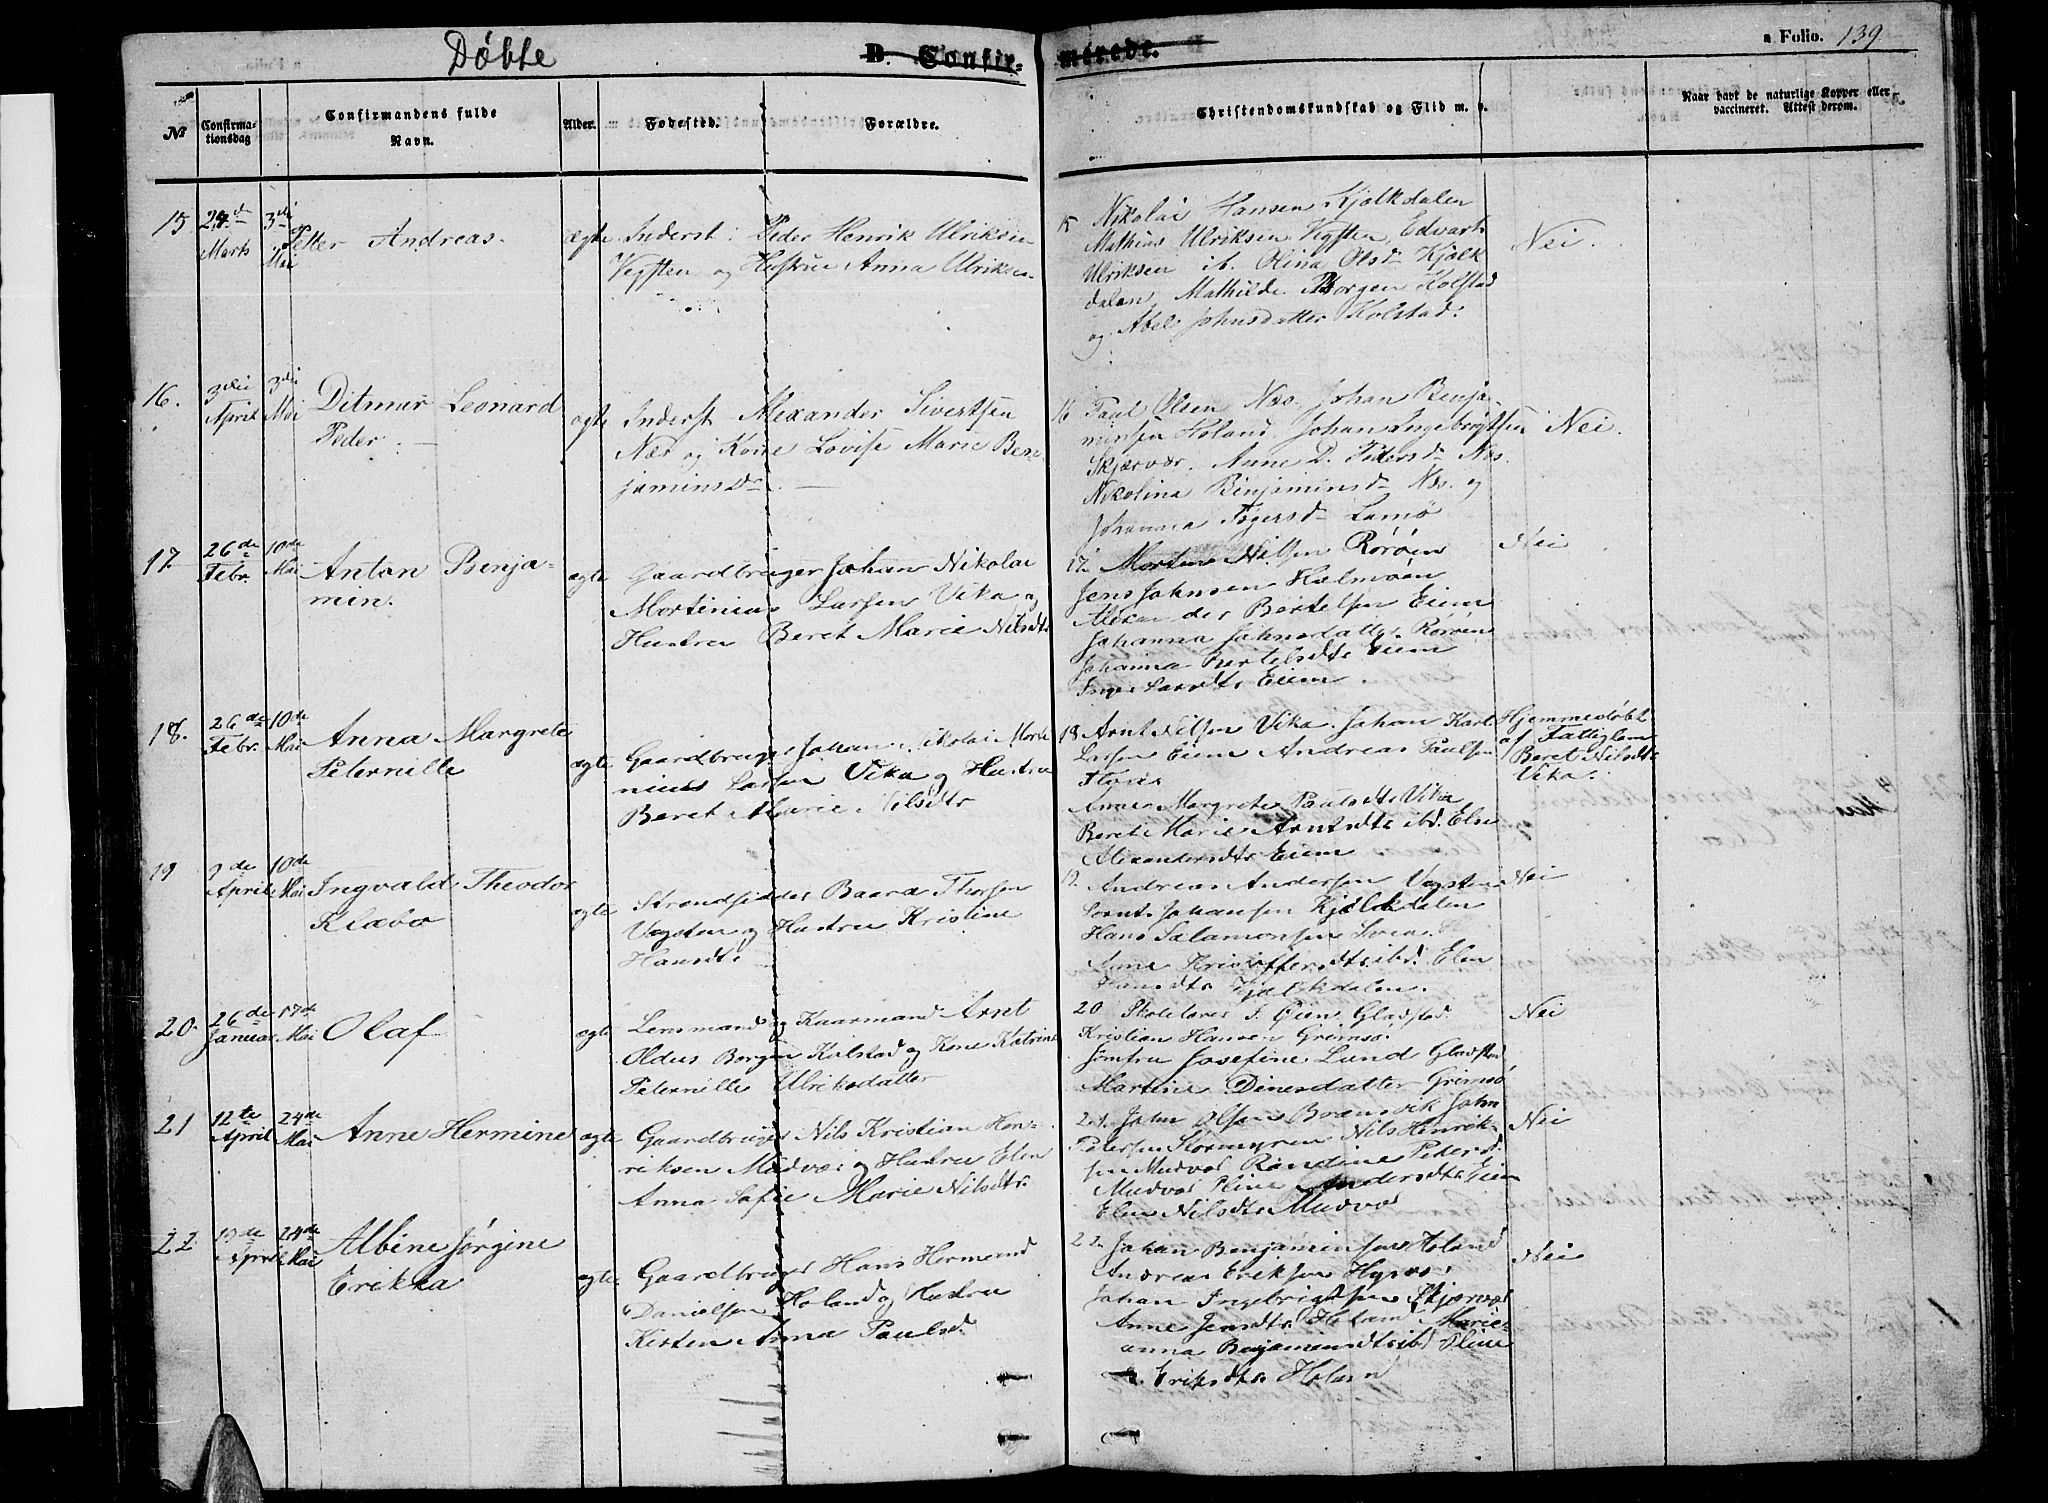 Døbte
D. Confir-
merede.
a Folio. 139
№
Confirma-
tionsdag
Confirmandens fulde
Navn.
Alder.
Fødested.
Forældre.
Christendomskundskab og Flid m. v.
Naar havt de naturlige Kopper eller
vaccineret. Attest derom.
15
24de
Marts
3die
Mai
Petter Andreas.
ægte
Inderst Peder Henrik Ulriksen
Vegsten og Hustrue Anna Ulriksd.
15 Nikolai Hansen Kjolkdalen
Mathias Ulriksen Vegsten, Edvart
Ulriksen ib. Olina Olsd. Kjolk
dalen, Mathilde Borgen Kolstad
og Abel Johnsdatter Kolstad.
Nei.
16.
3die
April
3die
Mai
Ditmar Leonard
Peder.
ægte
Inderst Alexander Sivertsen
Næs og Kone Lovise Marie Ben-
jaminsdr.
16 Paul Olsen Næs. Johan Benja-
minsen Holand. Johan Ingebrigtsen
Skjærvær. Anne D. Pedersdr Næs.
Nikolina Benjaminsdr Næs. og
Johanna Lamø
Nei.
17
26de
Febr.
10de
Mai
Anton Benja-
min.
ægte
Gaardbruger Johan Nikolai
Mortinius Larsen Vika og
Hustru Beret Marie Nilsdtr
17. Morten Nilsen Rørøen
Jens Johnsen Halmøen
Alexander Bertelsen Eiem
Johanna Johnsdatter Rørøen
Johanna Bertelsdtr Eiem
Inger Larsdtr Eiem.
Nei
18.
26de
Febr.
10de
Mai
Anna Margrete
Peternille
ægte
Gaardbruger Johan Nikolai Morti
nius Larsen Vika og Hustru
Beret Marie Nilsdtr
18 Arnt Nilsen Vika. Johan Karl
Larsen Eiem Andreas Paulsen
Florøs
Anne Margrete Paulsdtr Vika
Beret Marie Arntsdtr ibd. Elen
Alexandersdtr Eiem
Hjemmedøbt
af Fattiglem
Beret Nilsdtr
Vika.
19
9de
April
10de
Mai
Ingvald Theodor
Klæbo
ægte
Strandsidder Baard Thorsen
Vegsten og Hustru Kristine
Hansdtr
19. Andreas Andersen Vegsten
Johansen Kjølkdalen
Hans Salamonsen
Anne Kristoffersdtr ibd. Elen
Hansdtr Kjølkdalen.
Nei
20.
26de
Januar
17de
Mai
Olaf
ægte
Lensmand og Kaarmand Arnt
Oldus Borgen Kolstad og Kone Katrine
Peternille Ulriksdatter
20 Skolelærer J. Øien Gladstad.
Kristian Hansen Grimsø.
Jomfru Josefine Lund Gladstad
Martine Dinesdatter Grimsø
Nei
21
12te
April
24de
Mai
Anne Hermine
ægte
Gaardbruger Nils Kristian Hen-
riksen Mudvær og Hustru Elen
Anna Sofie Marie Nilsdtr.
21. John Olsen Brænsvik John
Petersen Stormyren Nils Henrik-
sen Mudvær Randine Petersd.
Mudvær Pline Andersdtr Eiem
Elen Nilsdtr Mudvær
Nei
22
13de
April
24de
Mai
Albine Jørgine
Erikka
ægte
Gaardbruger Hans Hermand
Danielsen Holand og Hustru
Kirsten Anna Paulsd.
22. Johan Benjaminsen Holand
Andreas Eriksen
Johan Ingebrigtsen Skjærvær
Anne Jensdtr Holand Marie-
anna Benjaminsdtr ibd Pline
Eriksdtr Holand
Nei